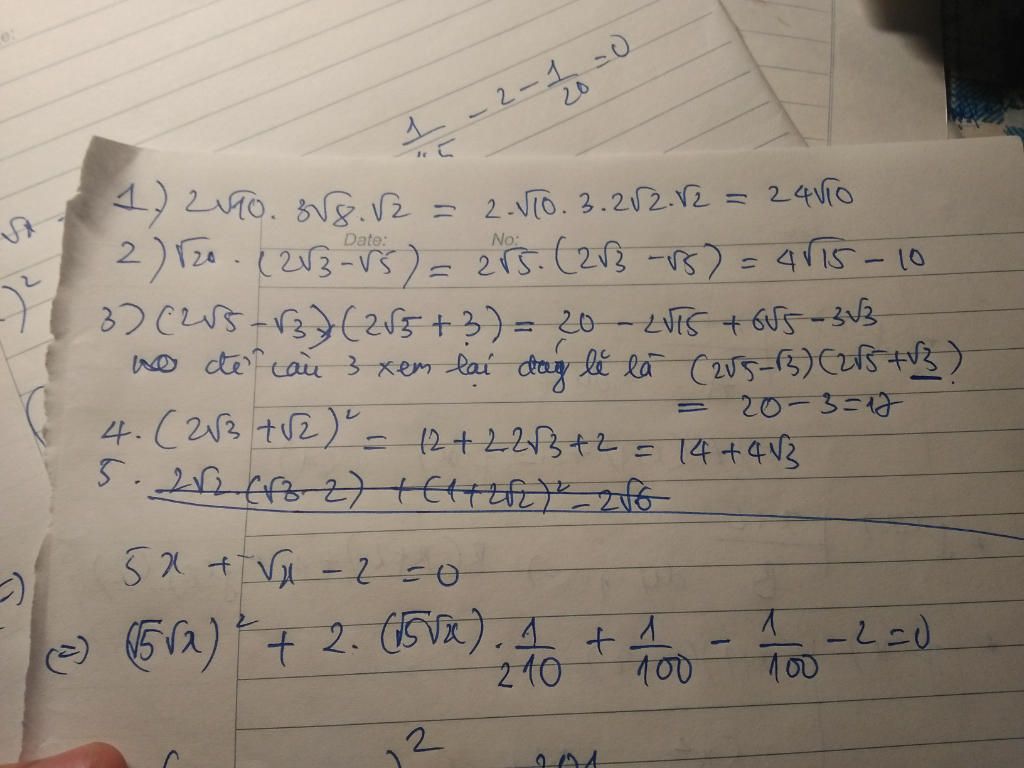 1/√5 - 2 - 1/20 = 0
1) 2√10 . 3√8 . √2 = 2.√10 . 3 . 2√2 . √2 = 24√10
Date: No:
2) √20 . (2√3 - √5) = 2√5 . (2√3 - √5) = 4√15 - 10
3) (2√5 - √3)(2√5 + 3) = 20 - 2√15 + 6√5 - 3√3
đề câu 3 xem lại đág lẽ là (2√5-√3)(2√5+√3)
= 20 - 3 = 17
4. (2√3 + √2)² = 12 + 2 2√3 + 2 = 14 + 4√3
5. 2√2 (√3 - 2) + (1 + 2√2)² - 2√6
5x + √x - 2 = 0
(=) (√5√x)² + 2 . (√5√x) . 1/210 + 1/100 - 1/100 - 2 = 0
)²